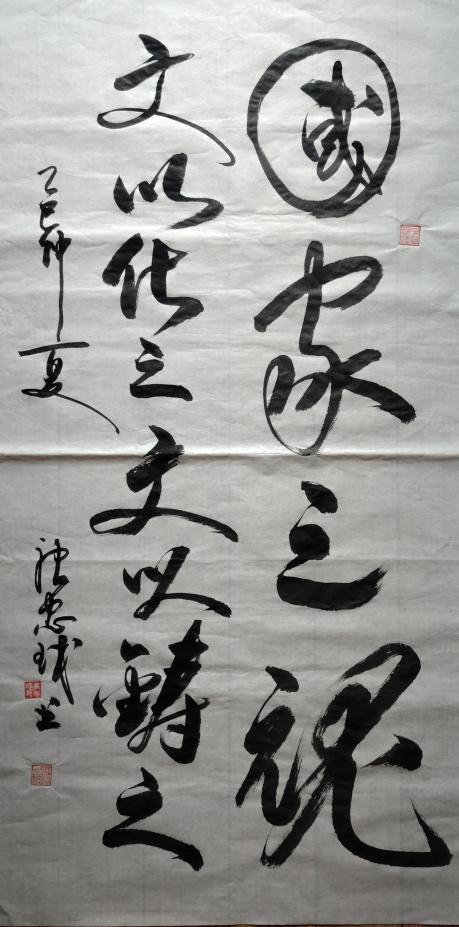 國家之魂
文以化之文以鑄之
乙巳仲夏
忠城书